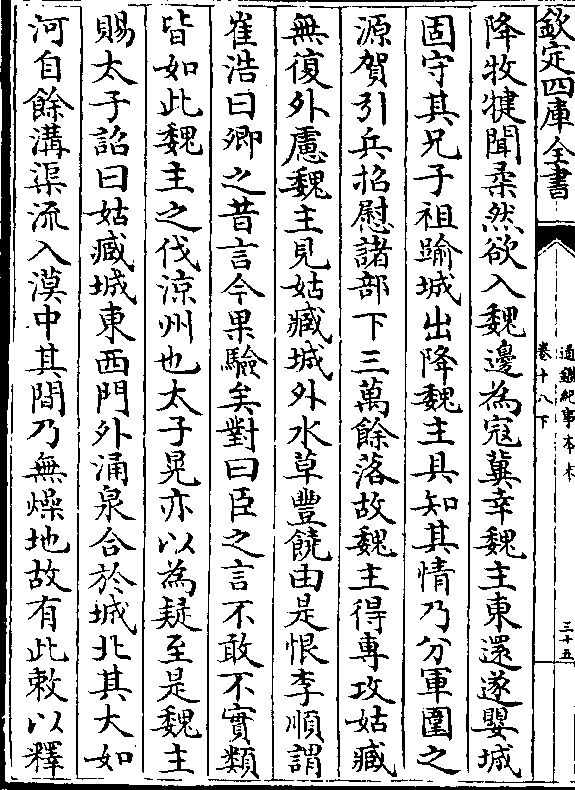 欽定四庫全書
通鑑紀事本末
卷十八下
三十五
降牧犍聞柔然欲入魏邊為冦冀幸魏主東還遂嬰城
固守其兄子祖踰城出降魏主具知其情乃分軍圍之
源賀引兵招慰諸部下三萬餘落故魏主得專攻姑臧
無復外慮魏主見姑臧城外水草豐饒由是恨李順謂
崔浩曰卿之昔言今果驗矣對曰臣之言不敢不實類
皆如此魏主之伐涼州也太子晃亦以為疑至是魏主
賜太子詔曰姑臧城東西門外涌泉合於城北其大如
河自餘溝渠流入漠中其間乃無燥地故有此敕以釋